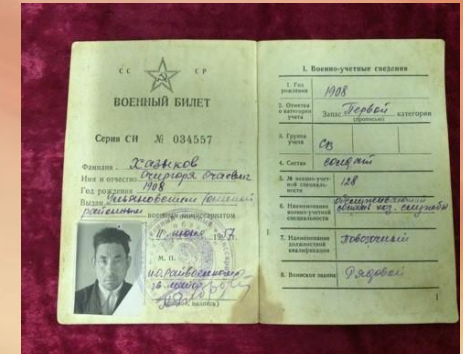 СС СР
ВОЕННЫЙ БИЛЕТ
Серия СИ № 034557
Фамилия Хазыков
Имя и отчество Очиргоря
Год рождения 1908
Выдан
районным военным комиссариатом
11 июня 1957
М. П.
I. Военно-учетные сведения
1. Год рождения 1908
2. Отметка о категории учета Запас Первой категории
(прописью)
3. Группа учета СВ
4. Состав солдат
5. № военно-учетной специальности 128
6. Наименование военно-учетной специальности хоз. службы
7. Наименование должностной квалификации повозочный
8. Воинское звание Рядовой
1